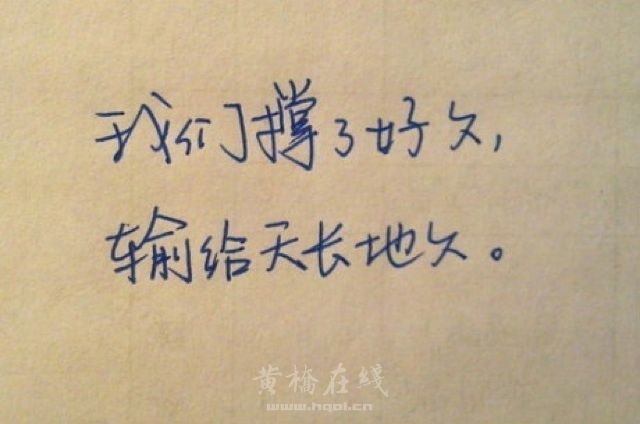 我们撑了好久，
输给天长地久。
黄橋在綫
www.hqol.cn